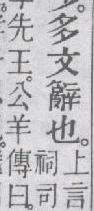 多文辭也。上言
祠司
先王。公羊傳曰。